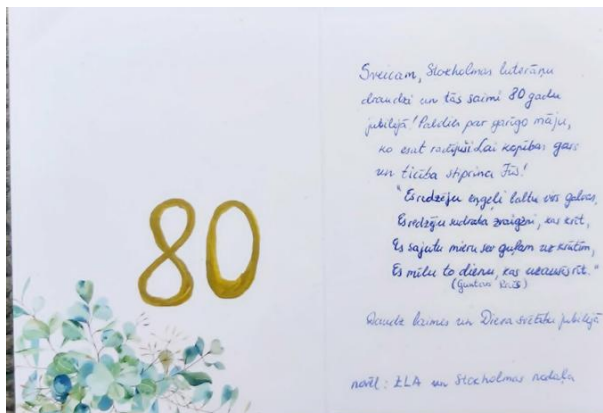 80
Sveicam, Stockholmas luterāņu
draudzi un tās saimi 80 gadu
jubilejā! Paldies par garīgo māju,
ko esat radījuši! Lai kopības gars
un ticība stiprina Jūs!
"Es redzēju eņģeli baltu virs galvas,
Es redzēju sudraba zvaigzni, kas krīt,
Es sajutu mieru sev guļam uz krūtīm,
Es mīlu to dienu, kas uzausīs rīt."
(Guntars
Daudz laimes un Dieva svētību jubilejā
novēl: LLA un Stockholmas nodaļa